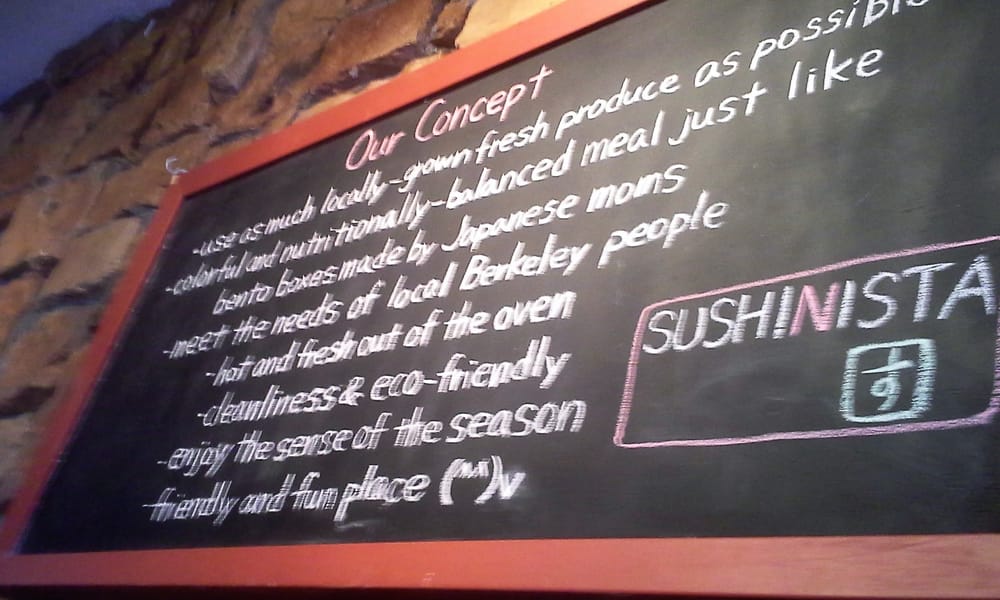 Our Concept
-use as much locally-grown fresh produce as possible
-colorful and nutritionally-balanced meal just like
bento boxes made by Japanese moms
-meet the needs of local Berkeley people
-hot and fresh out of the oven
-cleanliness & eco-friendly
-enjoy the sense of the season
friendly and fun place (^^)v
SUSHINISTA
1
9